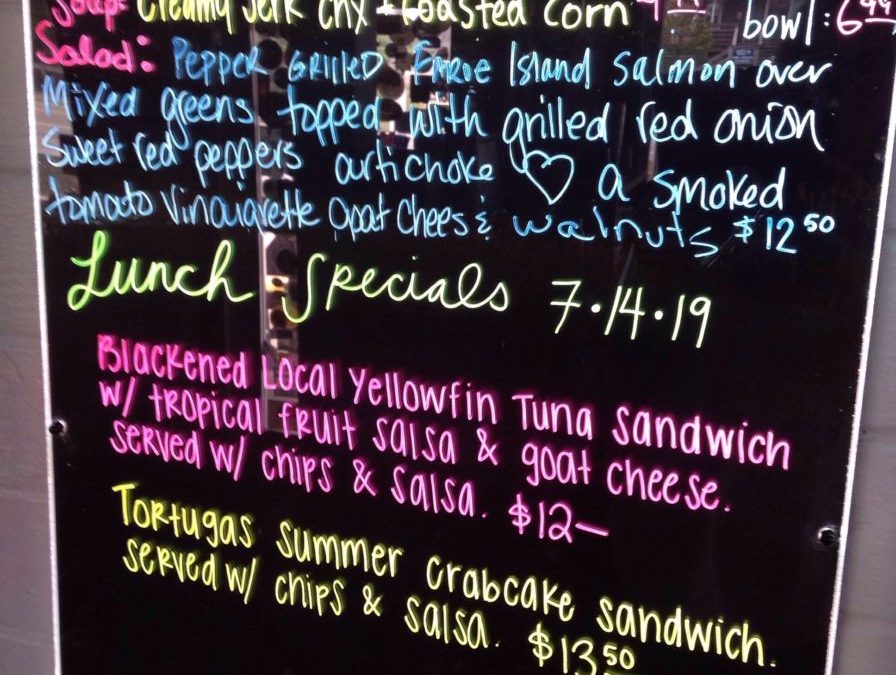 Soup: Creamy Jerk Chx & toasted corn bowl: 6.99
Salad: Pepper Grilled Faroe Island Salmon over
Mixed greens topped with grilled red onion
Sweet red peppers artichoke ♡ a smoked
tomato Vinaigrette Goat Chees & walnuts $12.50
Lunch Specials 7.14.19
Blackened Local Yellowfin Tuna Sandwich
w/ tropical fruit salsa & goat cheese.
served w/ chips & salsa. $12—
Tortugas Summer crabcake sandwich.
served w/ chips & salsa. $13.50